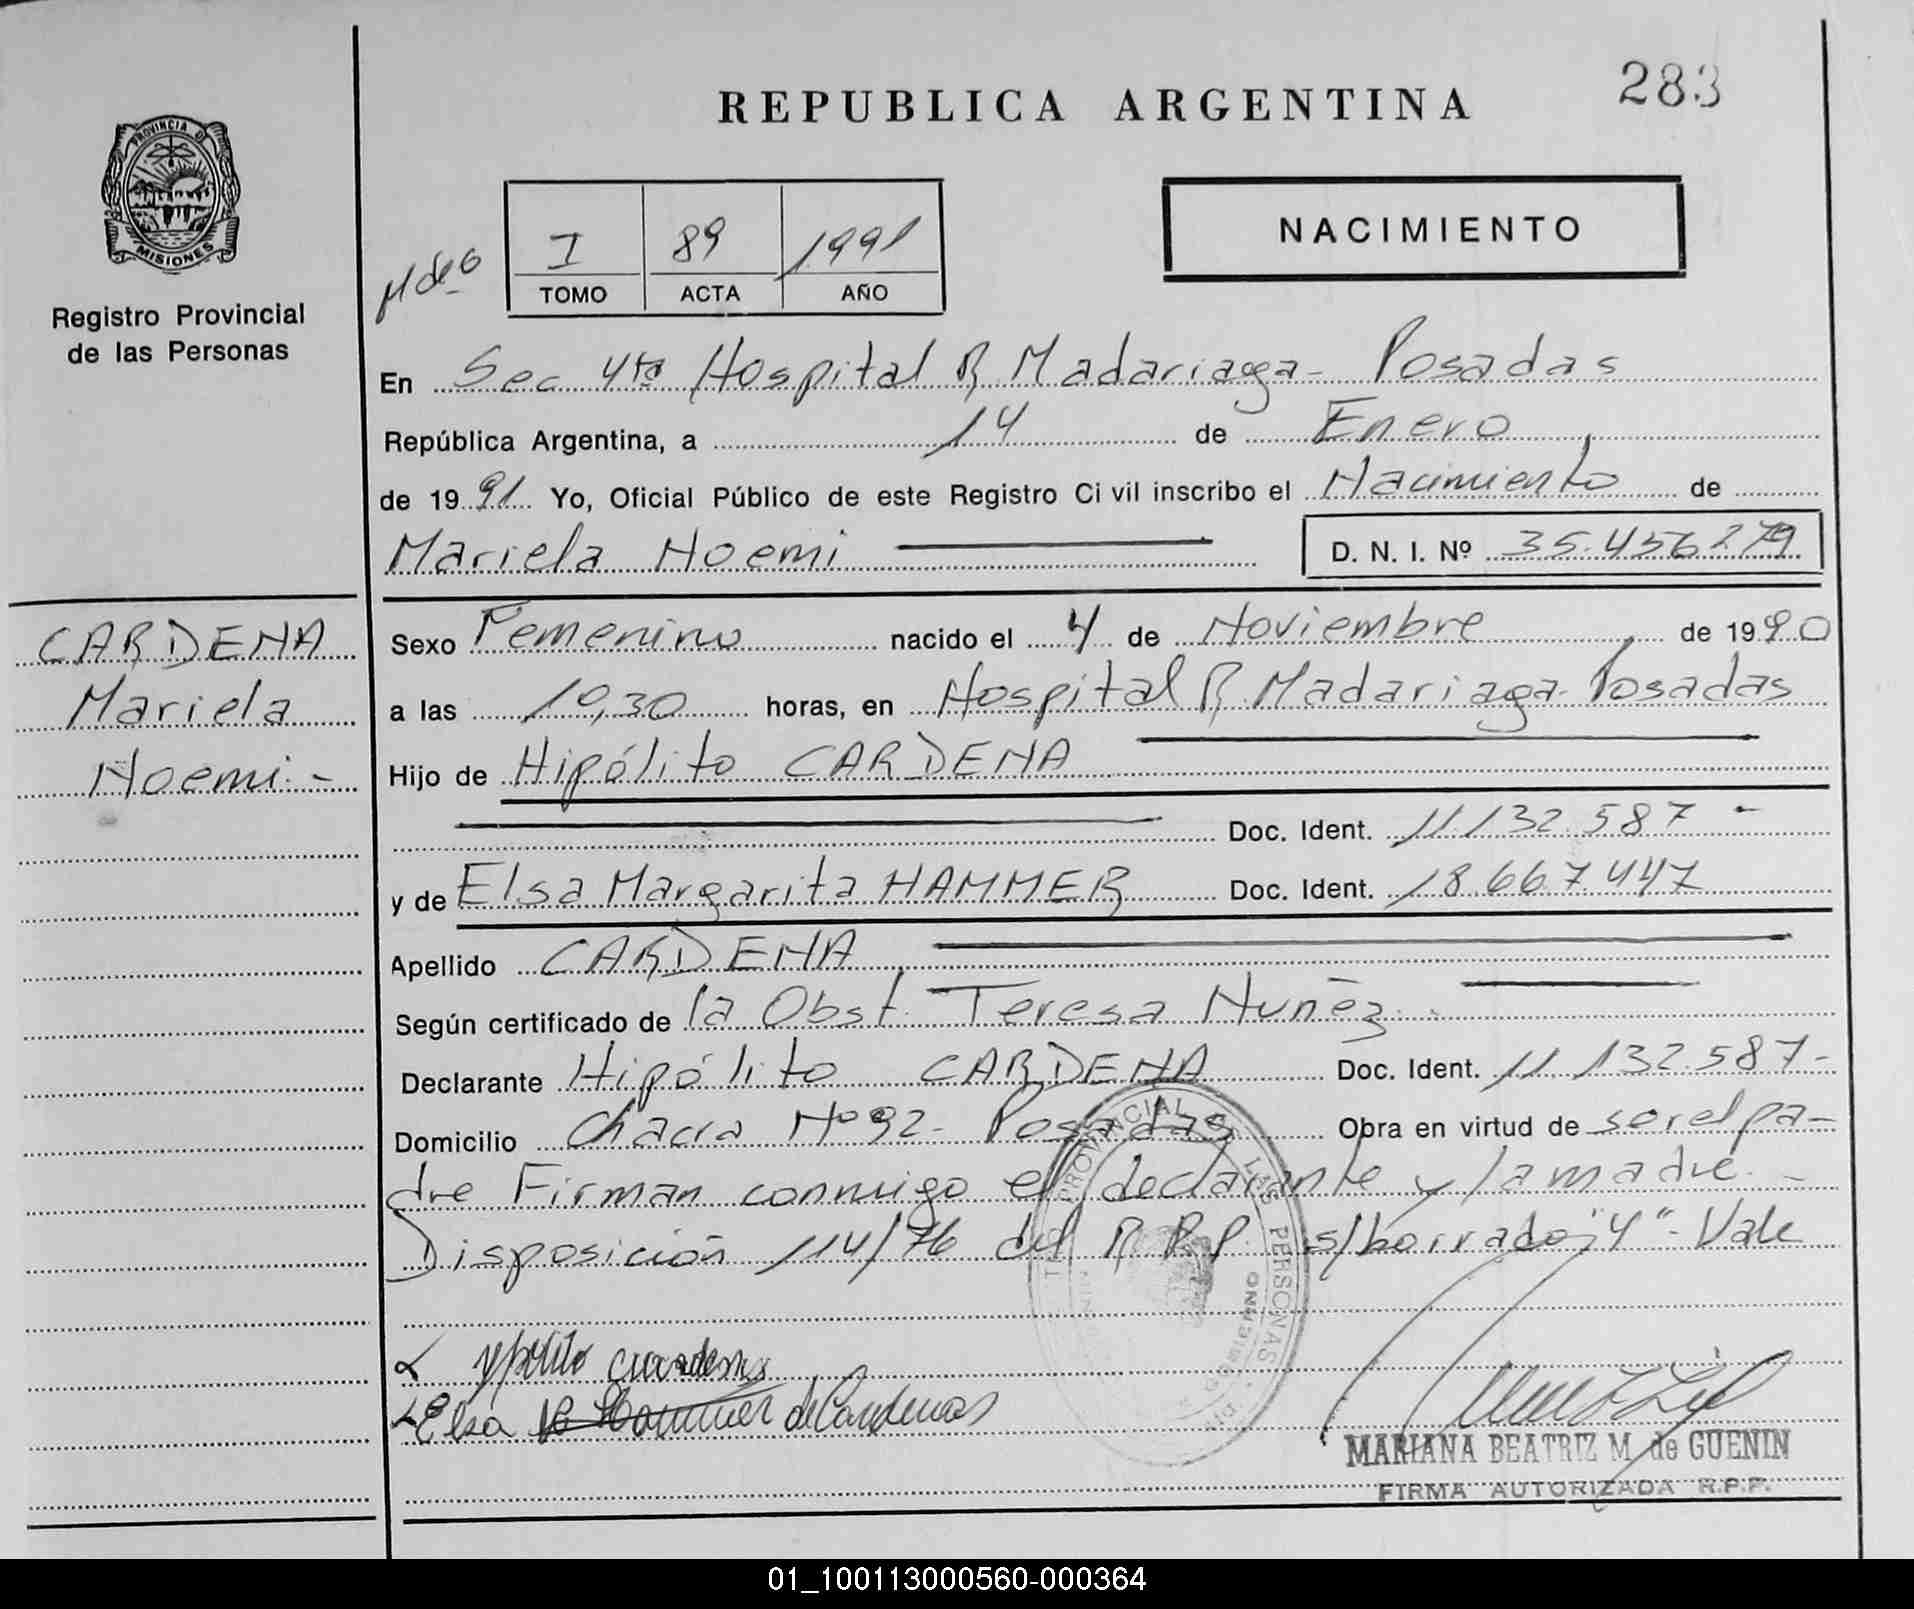 REPUBLICA ARGENTINA
283
PROVINCIA DE
MISIONES
Registro Provincial
de las Personas
I 89 1991
TOMO ACTA AÑO
NACIMIENTO
En Sec 4ta Hospital R Madariaga - Posadas
República Argentina, a 14 de Enero
de 1991 Yo, Oficial Público de este Registro Civil inscribo el Nacimiento de
Mariela Noemi
D. N. I. Nº 35.456.279
CARDENA
Mariela
Noemi.-
Sexo Femenino nacido el 4 de Noviembre de 1990
a las 10,30 horas, en Hospital R. Madariaga. Posadas
Hijo de Hipólito CARDENA
Doc. Ident. 11.132.587 -
y de Elsa Margarita HAMMER Doc. Ident. 18.667.447
Apellido CARDENA
Según certificado de la Obst. Teresa Nuñez.
Declarante Hipólito CARDENA Doc. Ident. 11.132.587-
Domicilio Chacra Nº 92- Posadas Obra en virtud de ser el pa-
dre Firman conmigo el declarante y la madre. -
Disposición 114/76 del R.P.P. s/borrado "4"- Vale
PROVINCIAL LAS PERSONAS
Elsa Hammer de Cardenas
MARIANA BEATRIZ M. de GUENIN
FIRMA AUTORIZADA R.P.P.
01_100113000560-000364